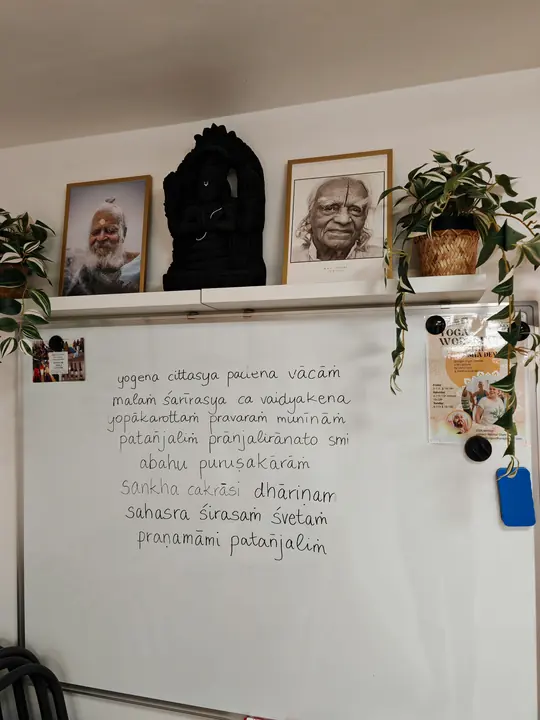 yogena cittasya padena vācāṁ
malaṁ śarīrasya ca vaidyakena
yopākarottaṁ pravaraṁ munīnāṁ
patañjaliṁ prānjalirānato smi
abahu puruṣakāraṁ
sankha cakrāsi dhāriṇaṁ
sahasra śirasaṁ śvetaṁ
praṇamāmi patañjaliṁ
YOGA